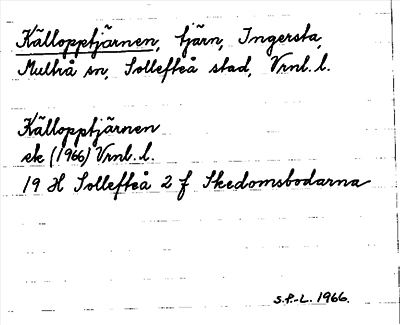 Källopptjärnen, tjärn, Ingersta,
Multrå sn, Sollefteå stad, Vrnl. l.
Källopptjärnen
ek (1966) Vrnl. l.
19 H Sollefteå 2 f Skedomsbodarna
S.P.-L. 1966.